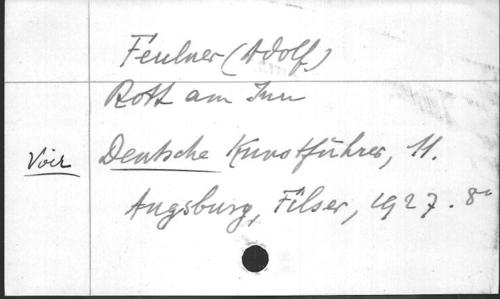 Feulner (Adolf)
Rott am Inn
Voir Deutsche Kunstführer, 11.
Augsburg, Filser, 1927. 8°